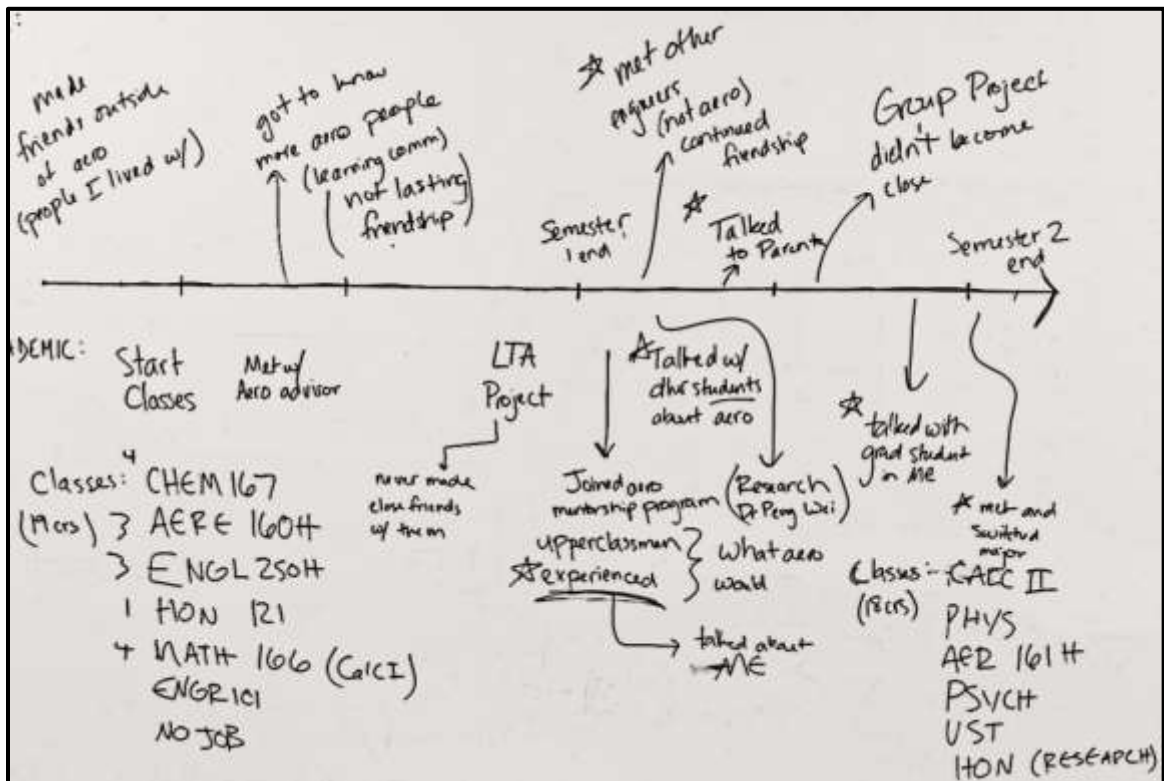 :
made
friends outside
of aero
(people I lived w/)
got to know
more aero people
(learning comm)
not lasting
friendship)
☆ met other
engineers
(not aero)
continued
friendship
Semester
1 end
☆
Talked
to Parents
Group Project
didn't become
close
Semester 2
end
DEMIC:
Start
Classes
Met w/
Aero advisor
LTA
Project
never made
close friends
w/ them
☆ Talked w/
other students
about aero
Joined aero
mentorship program
upperclassmen
☆ experienced
(Research
Dr Peng Wei)
what aero
would
talked about
ME
☆ talked with
grad student
in ME
☆ met and
switched
major
Classes: 4 CHEM 167
(19 crs) 3 AERE 160H
3 ENGL 250H
1 HON 121
4 MATH 166 (Calc I)
ENGR 101
NO JOB
Classes: CALC II
(18 crs)
PHYS
AER 161 H
PSYCH
UST
HON (RESEARCH)